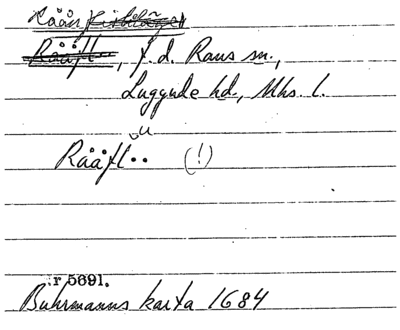 Rååŕs Fiskeläge
Rååfl., f. d. Raus sn.,
Luggude hd., Mhs. l.
u
Rååfl.. (!)
r 5691.
Buhrmanns karta 1684